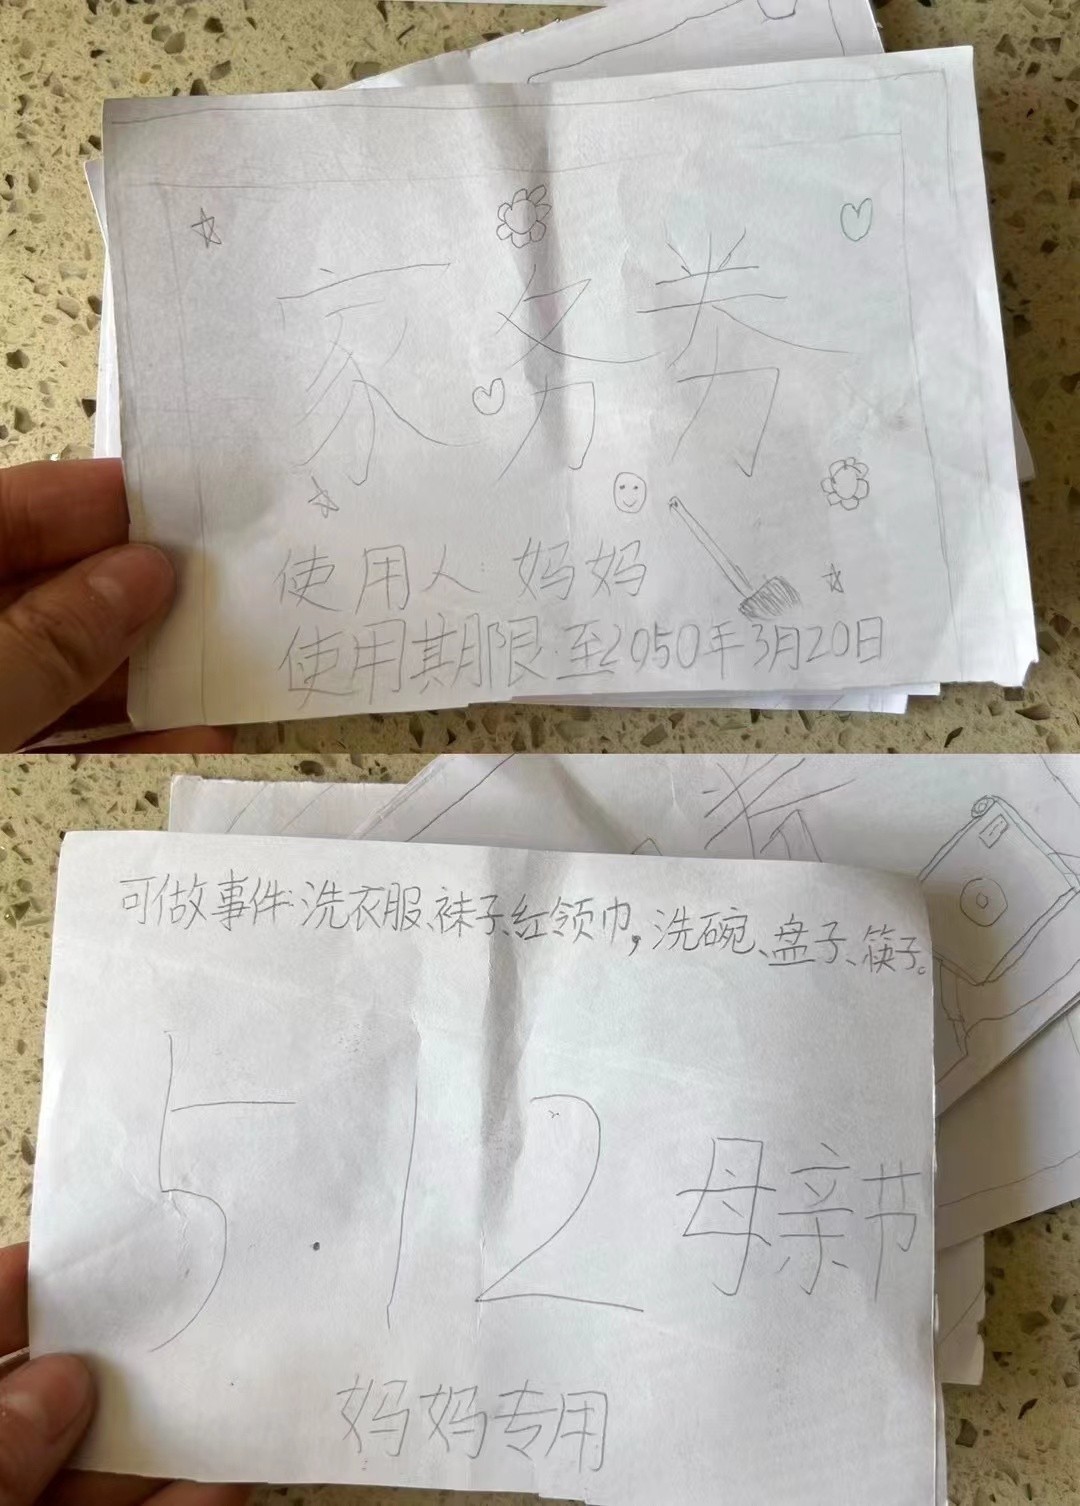 家务券
使用人 妈妈
使用期限:至2050年3月20日
可做事件:洗衣服、袜子、红领巾,洗碗、盘子、筷子。
5.12 母亲节
妈妈专用